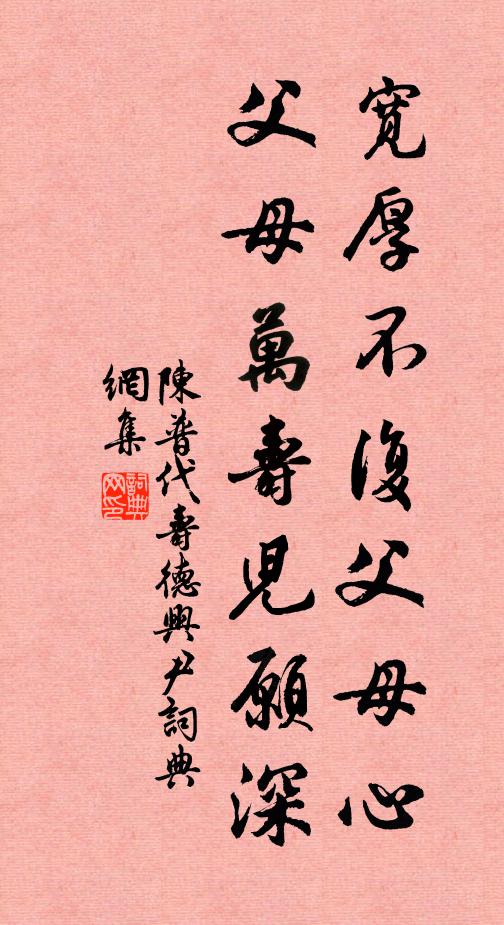 寬厚不復父母心
父母萬壽児願深
陳普代壽德興尹詞典
網集
詞典
网印